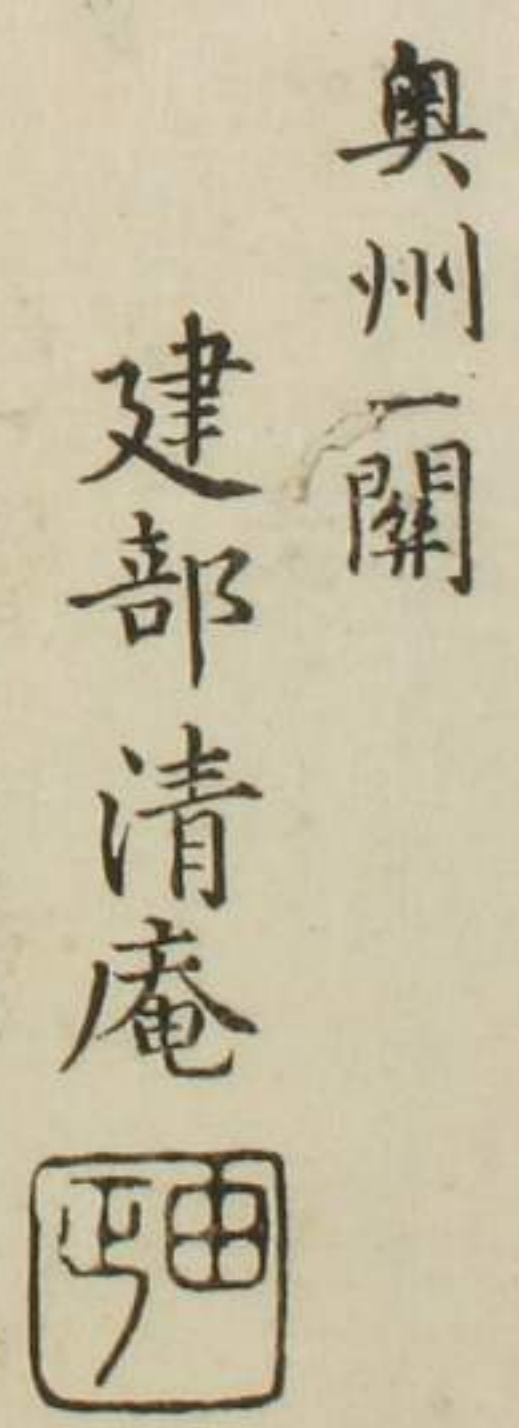 奧州一關
建部清庵
由正